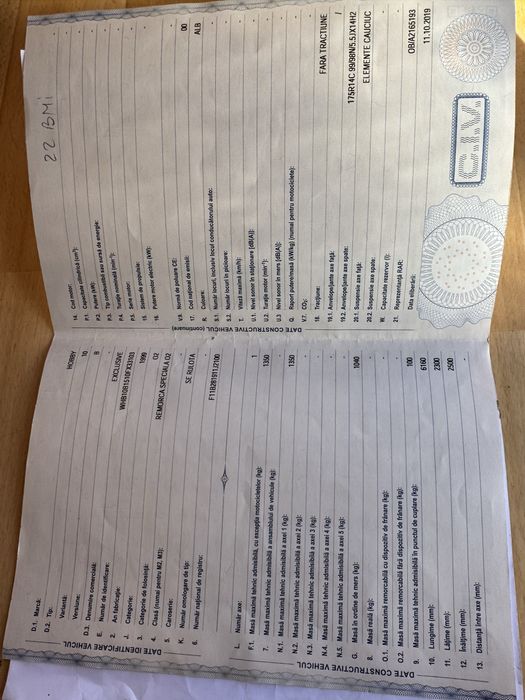 DATE IDENTIFICARE VEHICUL
D.1. Marcă: HOBBY
D.2. Tip: 10
Variantă: B
Versiune: -
D.3. Denumire comercială: EXCLUSIVE
E. Număr de identificare: WHB10B1510FX33103
2. An fabricaţie: 1999
J. Categorie: O2
3. Categorie de folosinţă: REMORCA SPECIALA O2
4. Clasa (numai pentru M2, M3): -
5. Caroserie: SE RULOTA
K. Număr omologare de tip: -
6. Număr naţional de registru: F11B2B1911J2100
DATE CONSTRUCTIVE VEHICUL
L. Număr axe: 1
F.1. Masă maximă tehnic admisibilă, cu excepţia motocicletelor (kg): 1350
7. Masă maximă tehnic admisibilă a ansamblului de vehicule (kg): -
N.1. Masă maximă tehnic admisibilă a axei 1 (kg): 1350
N.2. Masă maximă tehnic admisibilă a axei 2 (kg): -
N.3. Masă maximă tehnic admisibilă a axei 3 (kg): -
N.4. Masă maximă tehnic admisibilă a axei 4 (kg): -
N.5. Masă maximă tehnic admisibilă a axei 5 (kg): -
G. Masă în ordine de mers (kg): 1040
8. Masă reală (kg): -
O.1. Masă maximă remorcabilă cu dispozitiv de frânare (kg): -
O.2. Masă maximă remorcabilă fără dispozitiv de frânare (kg): -
9. Masă maximă tehnic admisibilă în punctul de cuplare (kg): 100
10. Lungime (mm): 6160
11. Lăţime (mm): 2300
12. Înălţime (mm): 2500
13. Distanţă între axe (mm): -
22 BMI
DATE CONSTRUCTIVE VEHICUL (continuare)
14. Cod motor: -
P.1. Capacitate cilindrică (cm³): -
P.2. Putere (kW): -
P.3. Tip combustibil sau sursă de energie: -
P.4. Turaţie nominală (min⁻¹): -
P.5. Serie motor: -
15. Sistem de propulsie: -
16. Putere motor electric (kW): -
V.9. Normă de poluare CE: -
17. Cod naţional de emisii: 00
R. Culoare: ALB
S.1. Număr locuri, inclusiv locul conducătorului auto: -
S.2. Număr locuri în picioare: -
T. Viteză maximă (km/h): -
U.1. Nivel sonor în staţionare [dB(A)]: -
U.2. Turaţie motor (min⁻¹): -
U.3. Nivel sonor în mers [dB(A)]: -
Q. Raport putere/masă (kW/kg) (numai pentru motociclete): -
V.7. CO₂: -
18. Tracţiune: FARA TRACTIUNE
19.1. Anvelope/jante axe faţă: /
19.2. Anvelope/jante axe spate: 175R14C 99/98N/5.5JX14H2
20.1. Suspensie axe faţă:
20.2. Suspensie axe spate: ELEMENTE CAUCIUC
W. Capacitate rezervor (l): -
21. Reprezentanţa RAR: OB/A2165193
Data eliberării: 11.10.2019
C.I.V.